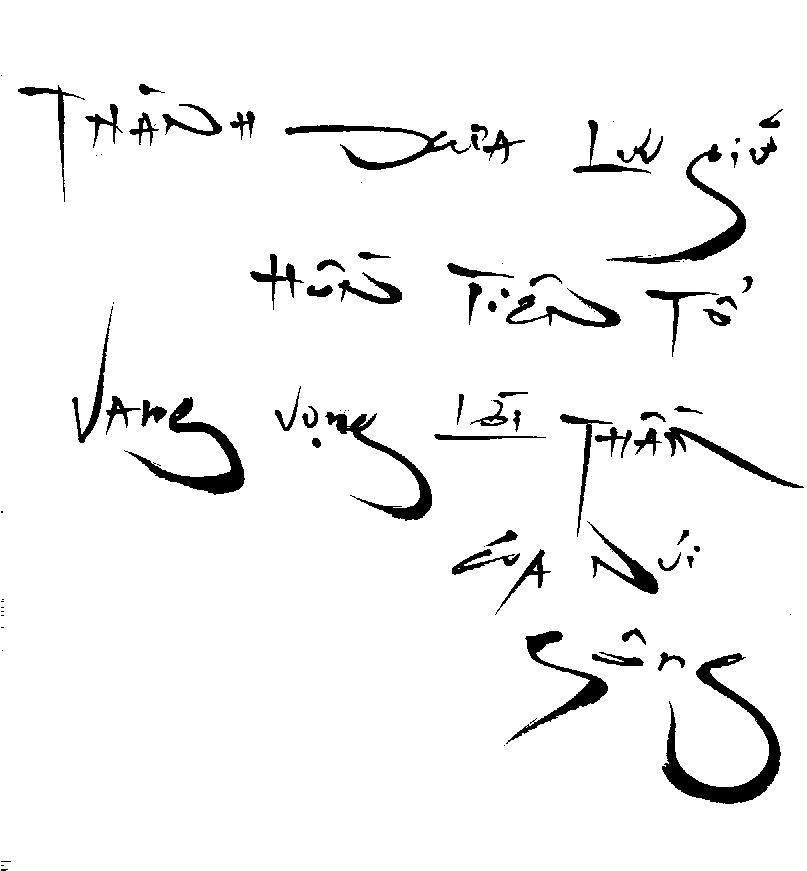 Thành xưa lưu giữ
hồn tiên tổ
Vang vọng lời thần
của núi
sông